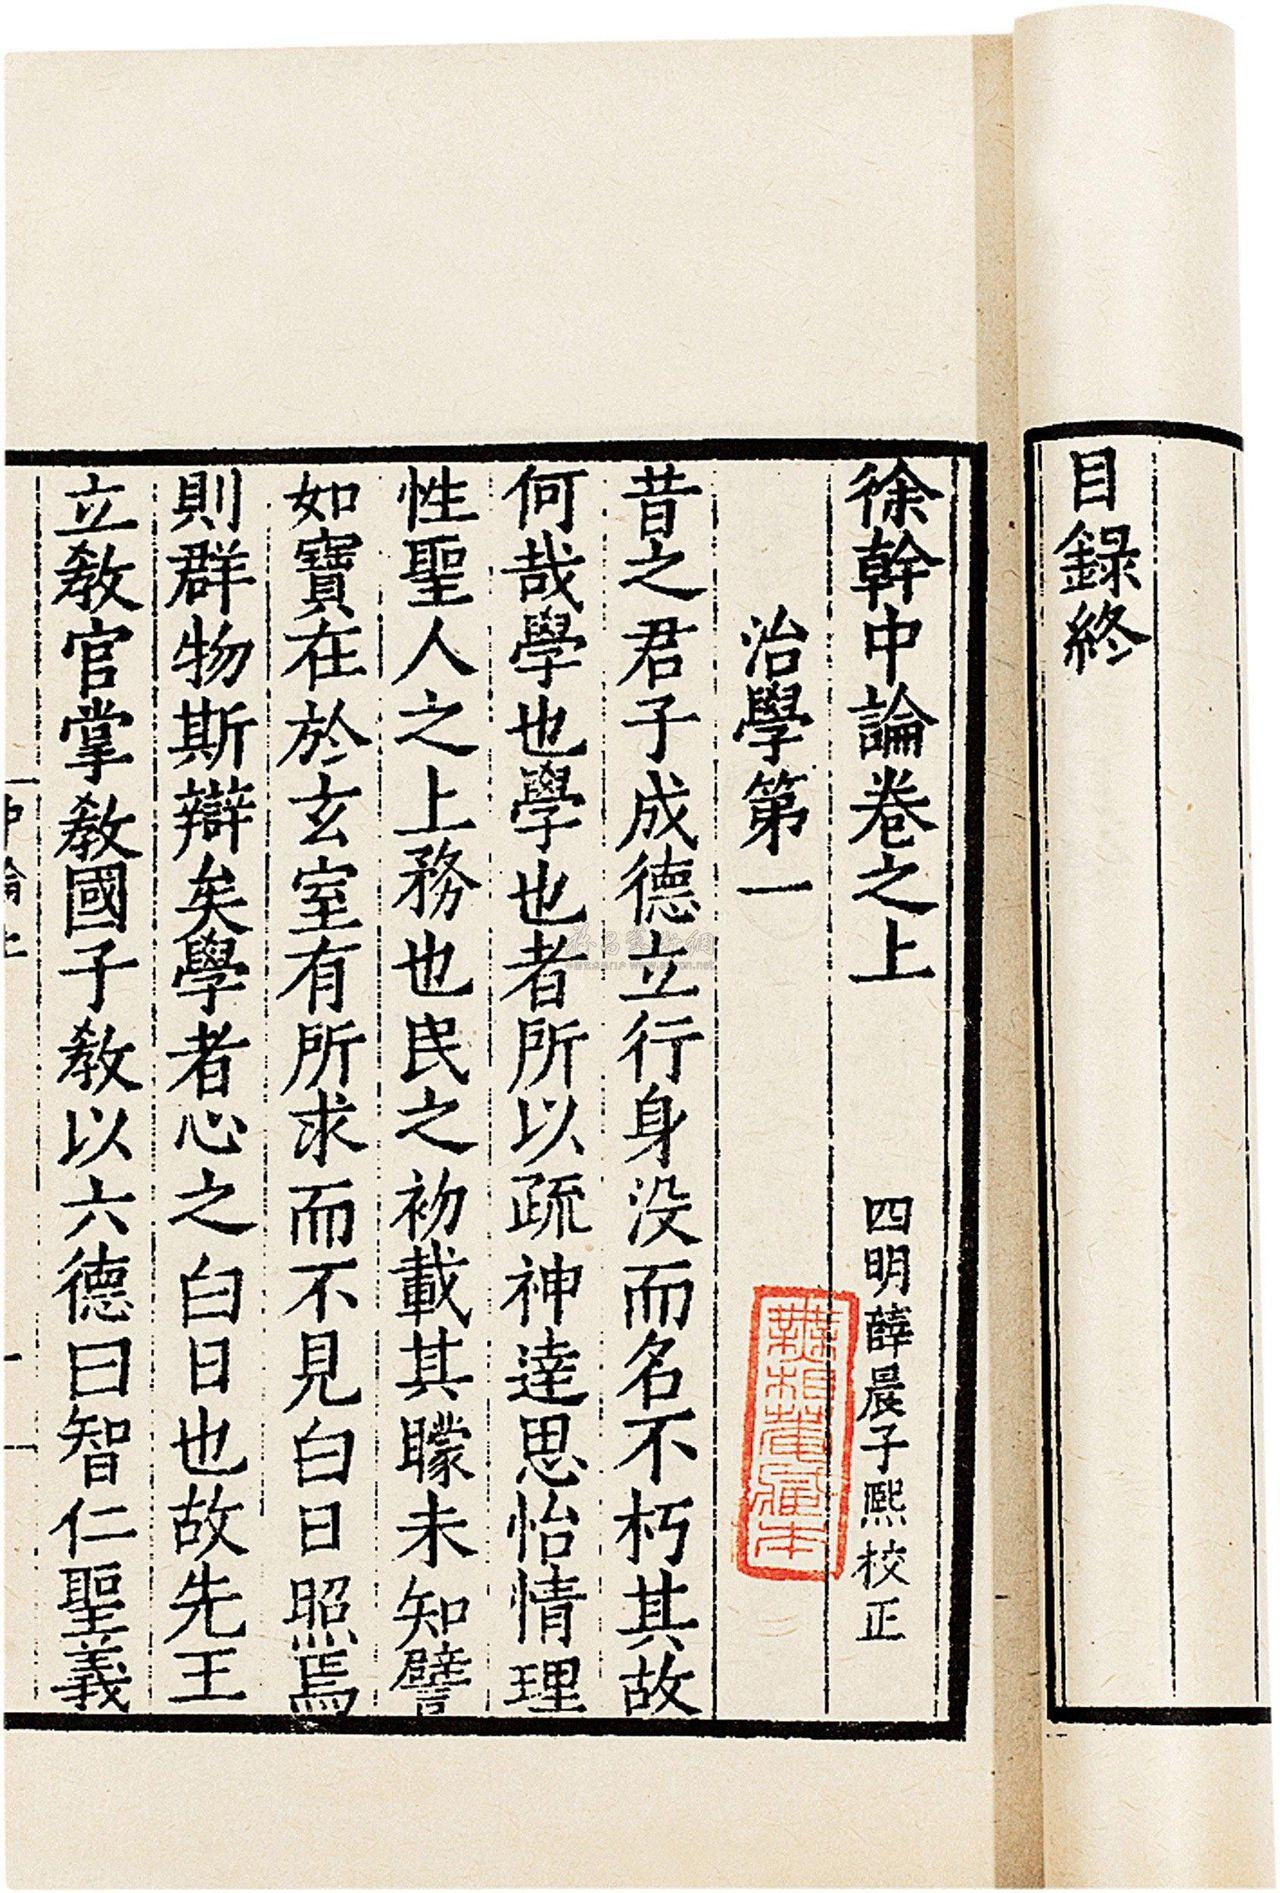 目錄終
徐幹中論卷之上
四明薛晨子熙校正
治學第一
昔之君子成德立行身没而名不朽其故
何哉學也學也者所以疏神達思怡情理
性聖人之上務也民之初載其矇未知譬
如寶在於玄室有所求而不見白日照焉
則群物斯辯矣學者心之白日也故先王
立教官掌教國子教以六德曰智仁聖義
中論上